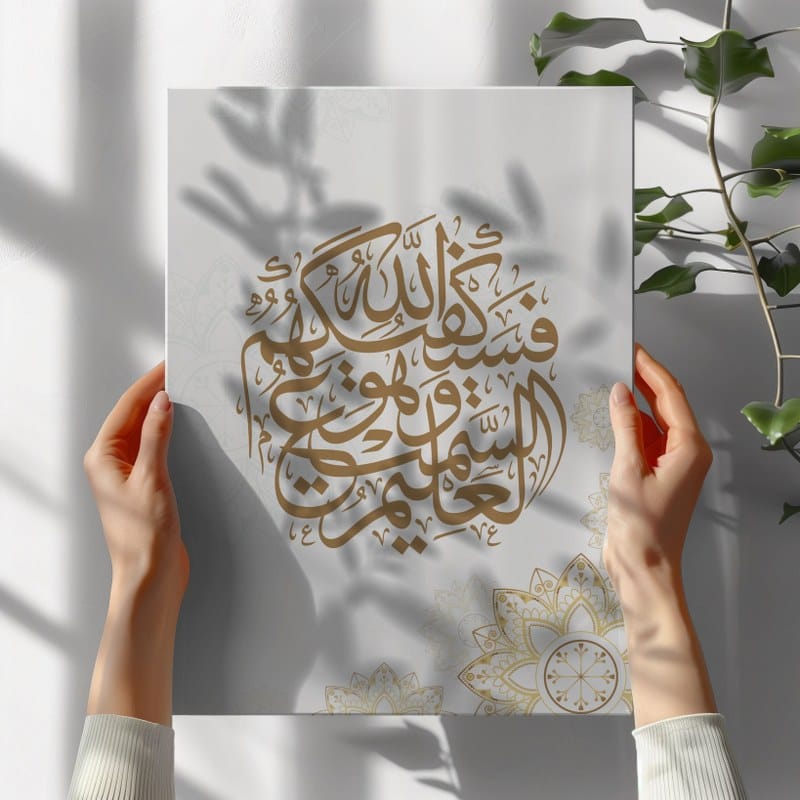 فسيكفيكهم الله
وهو
السميع
العليم